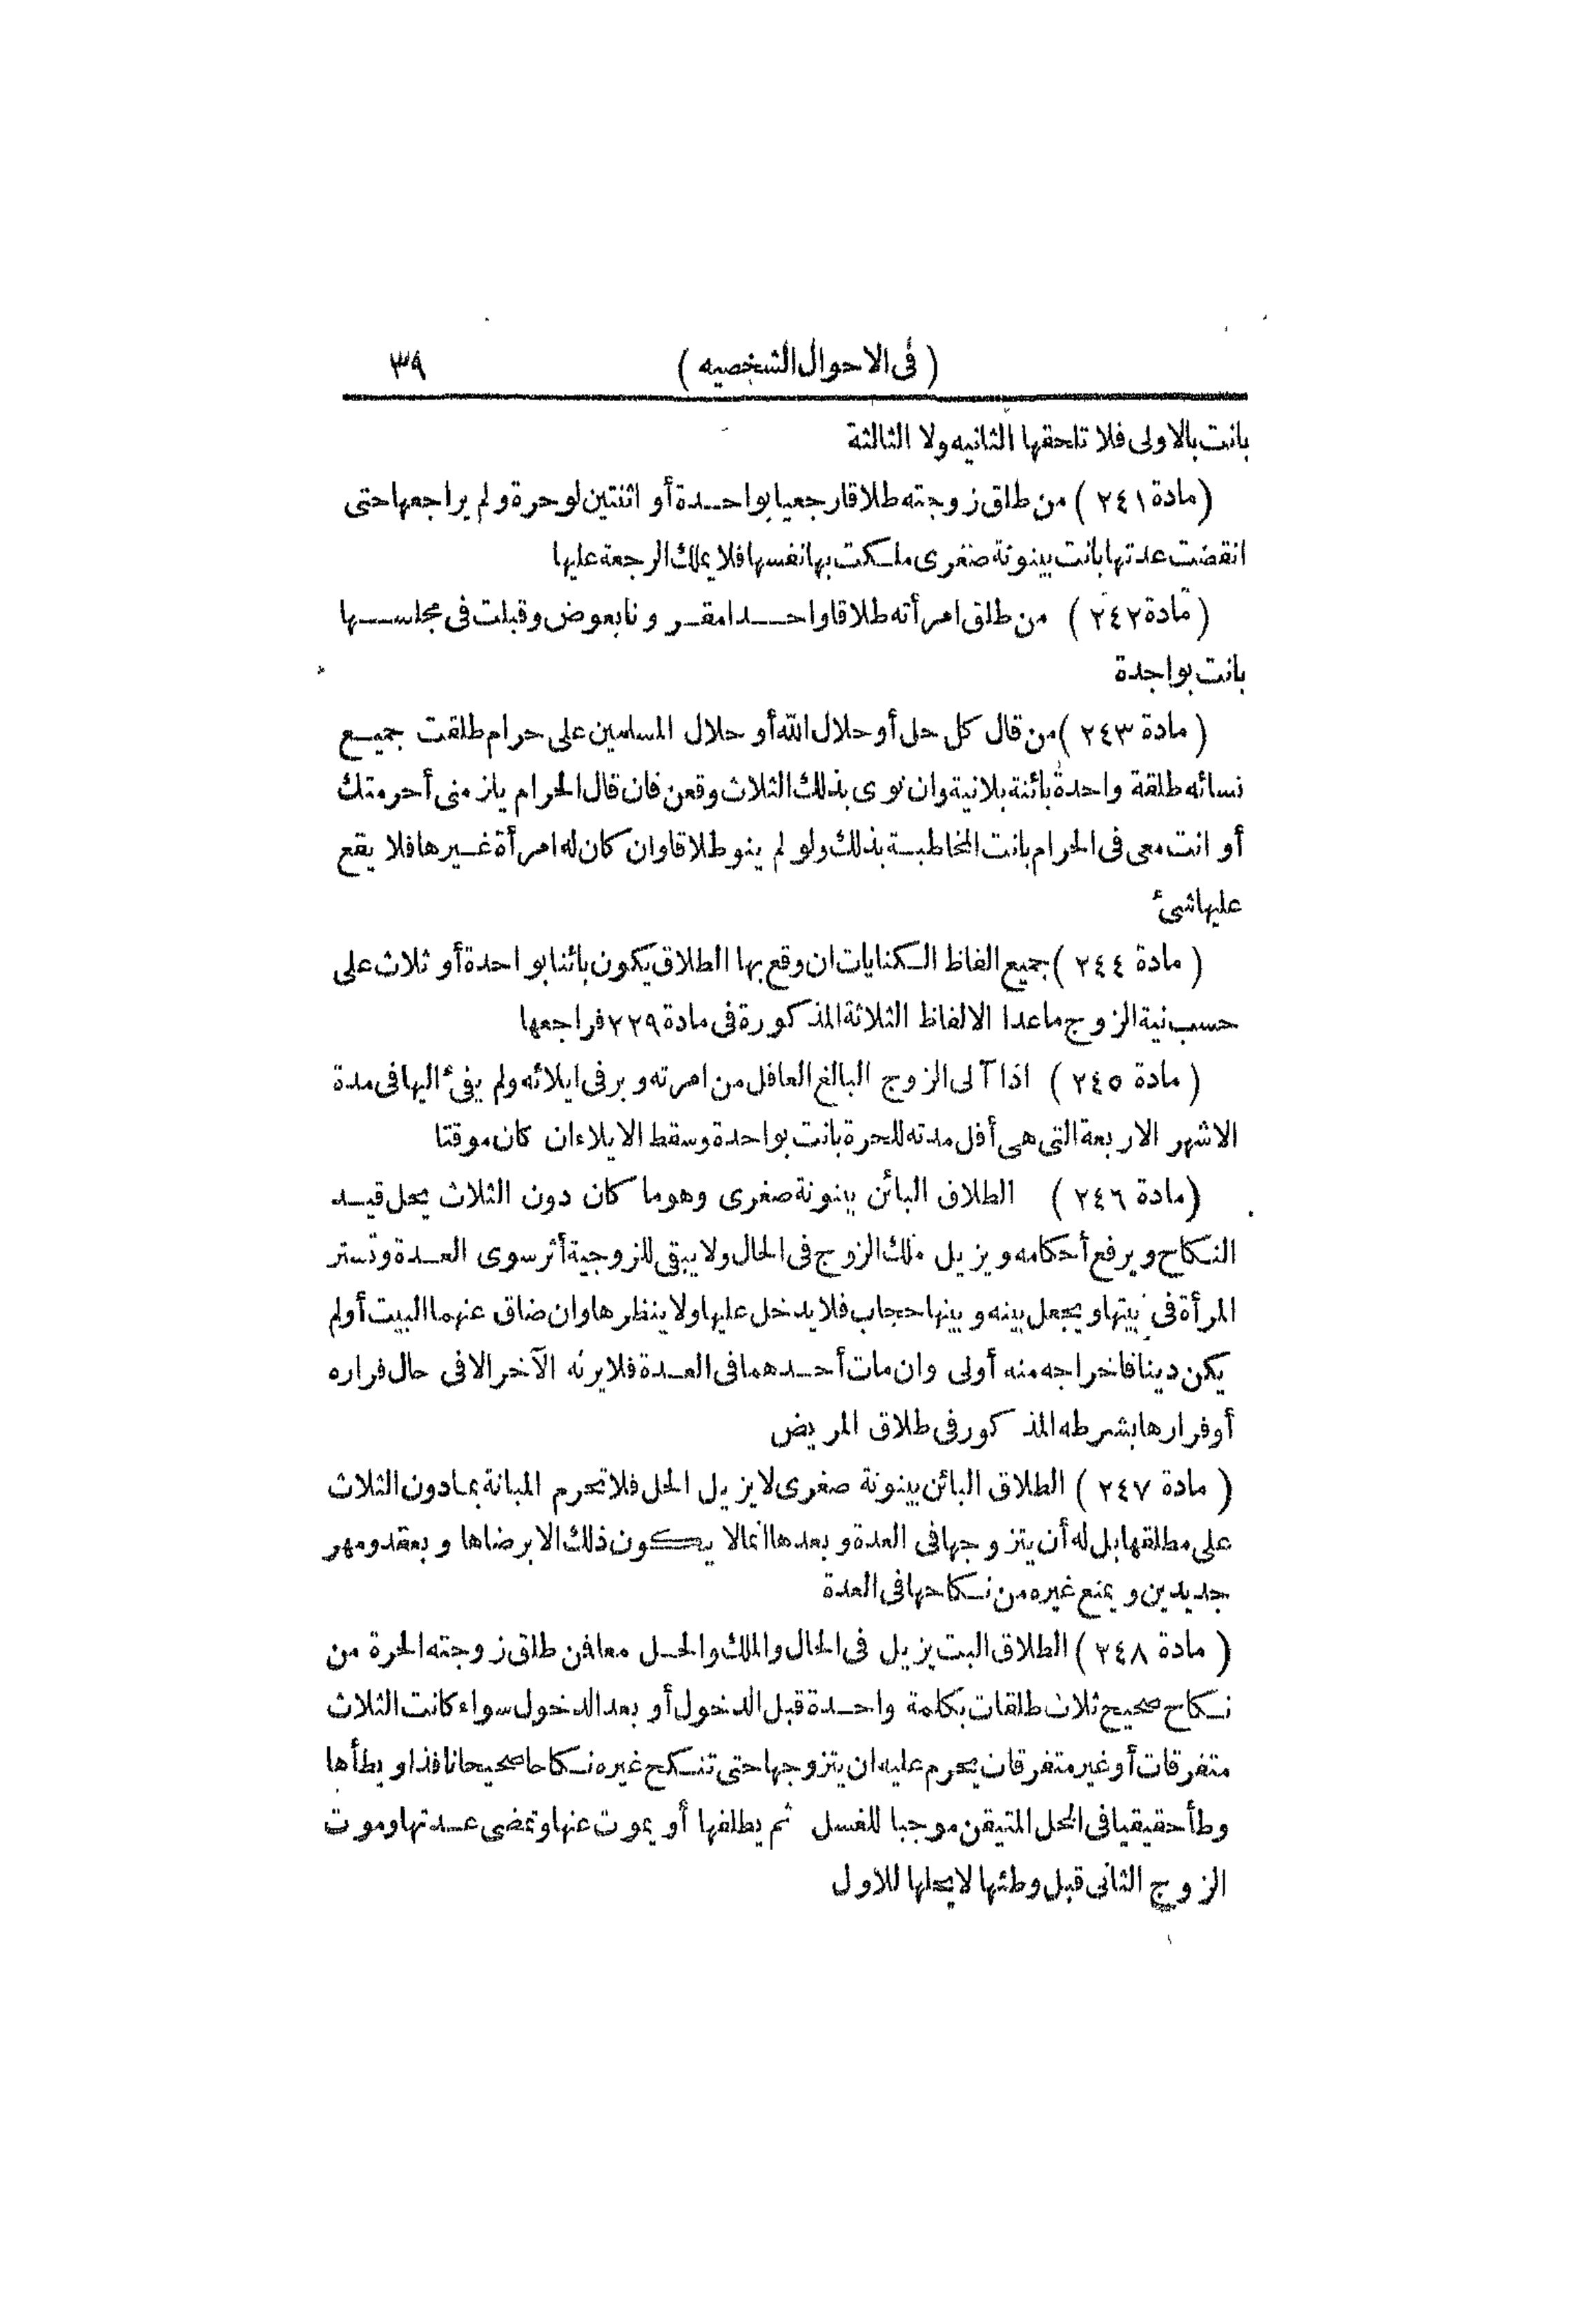 ( فى الاحوال الشخصيه ) ٣٩
بانت بالاولى فلا تلحقها الثانيه ولا الثالثة
( مادة ٢٤١ ) من طلق زوجته طلاقا رجعيا بواحدة أو اثنتين لو حرة ولم يراجعها حتى
انقضت عدتها بانت بينونة صغرى ملكت بها نفسها فلا يملك الرجعة عليها
( مادة ٢٤٢ ) من طلق امرأته طلاقا واحدا مقرونا بعوض وقبلت فى مجلسها
بانت بواحدة
( مادة ٢٤٣ ) من قال كل حل أو حلال الله أو حلال المسلمين على حرام طلقت جميع
نسائه طلقة واحدة بائنة بلا نية وان نوى بذلك الثلاث وقعن فان قال الحرام يلزمنى أحرمتك
أو انت معى فى الحرام بانت المخاطبة بذلك ولو لم ينو طلاقا وان كان له امرأة غيرها فلا يقع
عليها شئ
( مادة ٢٤٤ ) جميع الفاظ الكنايات ان وقع بها الطلاق يكون بائنا بواحدة أو ثلاث على
حسب نية الزوج ما عدا الالفاظ الثلاثة المذكورة فى مادة ٢٢٩ فراجعها
( مادة ٢٤٥ ) اذا آلى الزوج البالغ العاقل من امرته وبر فى ايلائه ولم يفئ اليها فى مدة
الاشهر الاربعة التى هى أقل مدته للحرة بانت بواحدة وسقط الايلاء ان كان موقتا
( مادة ٢٤٦ ) الطلاق البائن بينونة صغرى وهو ما كان دون الثلاث يحل قيد
النكاح ويرفع أحكامه ويزيل ملك الزوج فى الحال ولا يبقى للزوجية أثر سوى العدة وتستتر
المرأة فى بيتها ويجعل بينه وبينها حجاب فلا يدخل عليها ولا ينظرها وان ضاق عنهما البيت أو لم
يكن دينا فاخراجه منه أولى وان مات أحدهما فى العدة فلا يرثه الآخر الا فى حال فراره
أو فرارها بشرطه المذكور فى طلاق المريض
( مادة ٢٤٧ ) الطلاق البائن بينونة صغرى لا يزيل الحل فلا تحرم المبانة بما دون الثلاث
على مطلقها بل له أن يتزوجها فى العدة وبعدها انما لا يكون ذلك الا برضاها وبعقد ومهر
جديدين ويمنع غيره من نكاحها فى العدة
( مادة ٢٤٨ ) الطلاق البت يزيل فى الحال والملك والحل معا فمن طلق زوجته الحرة من
نكاح صحيح ثلاث طلقات بكلمة واحدة قبل الدخول أو بعد الدخول سواء كانت الثلاث
متفرقات أو غير متفرقات يحرم عليه ان يتزوجها حتى تنكح غيره نكاحا صحيحا نافذا ويطأها
وطأ حقيقيا فى المحل المتيقن موجبا للغسل ثم يطلقها أو يموت عنها وتمضى عدتها وموت
الزوج الثانى قبل وطئها لا يحلها للاول